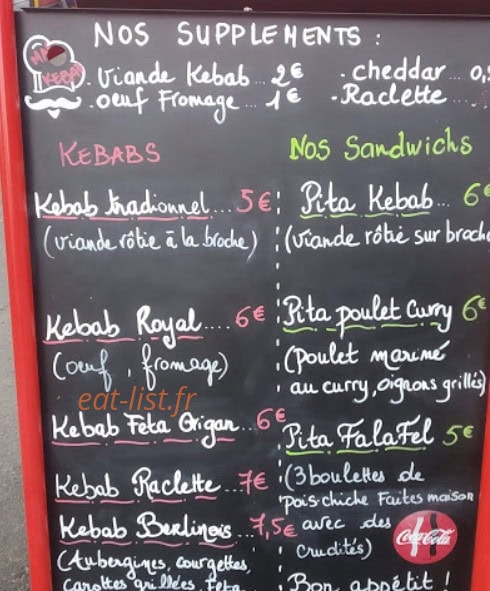 NOS SUPPLEMENTS :
MR KEBAB
Viande Kebab ... 2€
oeuf Fromage ... 1€
. cheddar .... 0,
. Raclette ....
KEBABS
Kebab tradionnel ... 5€
(viande rôtie à la broche)
Kebab Royal .... 6€
(oeuf, fromage)
eat-list.fr
Kebab Feta Origan ... 6€
Kebab Raclette ... 7€
Kebab Berlinois ... 7,5€
(Aubergines, courgettes,
carottes grillées, feta
NOS Sandwichs
Pita Kebab ... 6€
(viande rôtie sur broche
Pita poulet Curry 6€
(poulet mariné
au curry, oignons grillés)
Pita FalaFel 5€
(3 boulettes de
pois-chiche Faites maison
avec des
crudités)
Coca-Cola
Bon appétit !